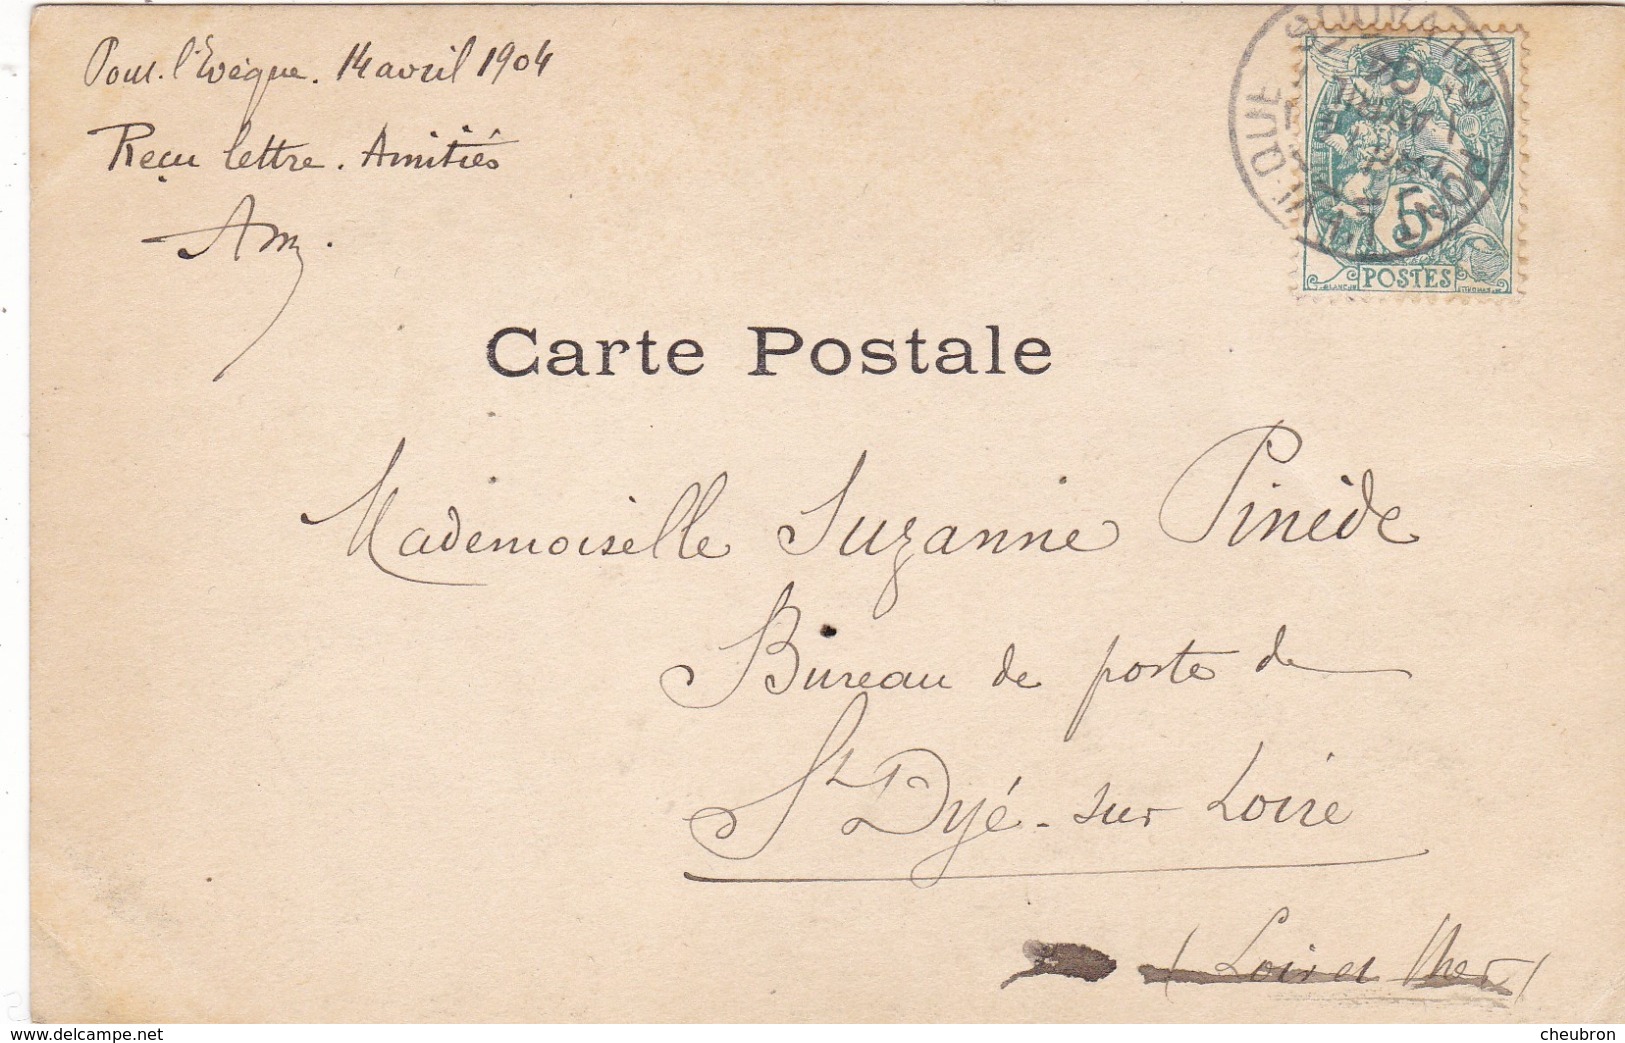 Pont. l'Evêque. 14 avril 1904
Reçu lettre. Amitiés
Carte Postale
Mademoiselle Suzanne Pinède
Bureau de poste de
St Dyé-sur Loire
(Loir et Cher)
5
POSTES
cheubron@delcampe.net